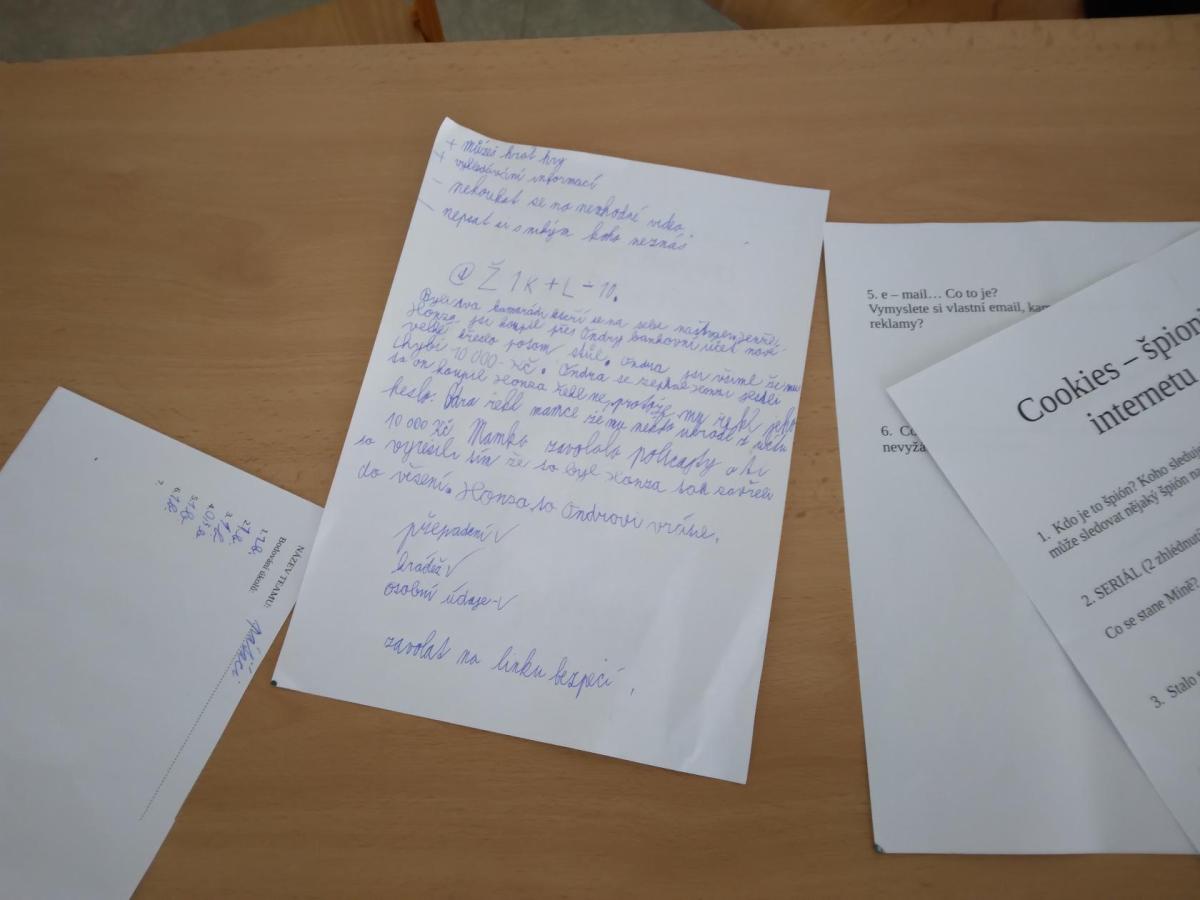 + můžeš hrat hry
+ vyhledávání informací
- nekoukat se na nevhodné videa.
- nepsat si s nikým koho neznáš
Ž 1K + L - 10.
Byli dva kamarádi kteří se na sebe
Honza jsi koupil přes Ondry bankovní účet nové
velké křeslo potom stůl. Ondra jsi všiml že mu
chybí 10 000 Kč. Ondra se zeptal Honzi jestli
to on koupil Honza řekl ne protože mu řekl jeho
heslo. řekl mamce že mu někdo ukradl z účtu
10 000 Kč Mamka zavolala policajty a ti
to vyřešili tím že to byl Honza tak zavřeli
do vězení. Honza to Ondrovi vrátil.
přepadení √
krádež √
osobní údaje-√
zavolat na linku bezpečí.
NÁZEV TEAMU:
Bodování úkolů:
1.
2.
3.
4.
5.
6.
7.
5. e – mail… Co to je?
Vymyslete si vlastní email,
reklamy?
6.
Cookies –
internetu
1. Kdo je to špión? Koho
může sledovat nějaký špión
2. SERIÁL (2
Co se stane Mině?
3. Stalo